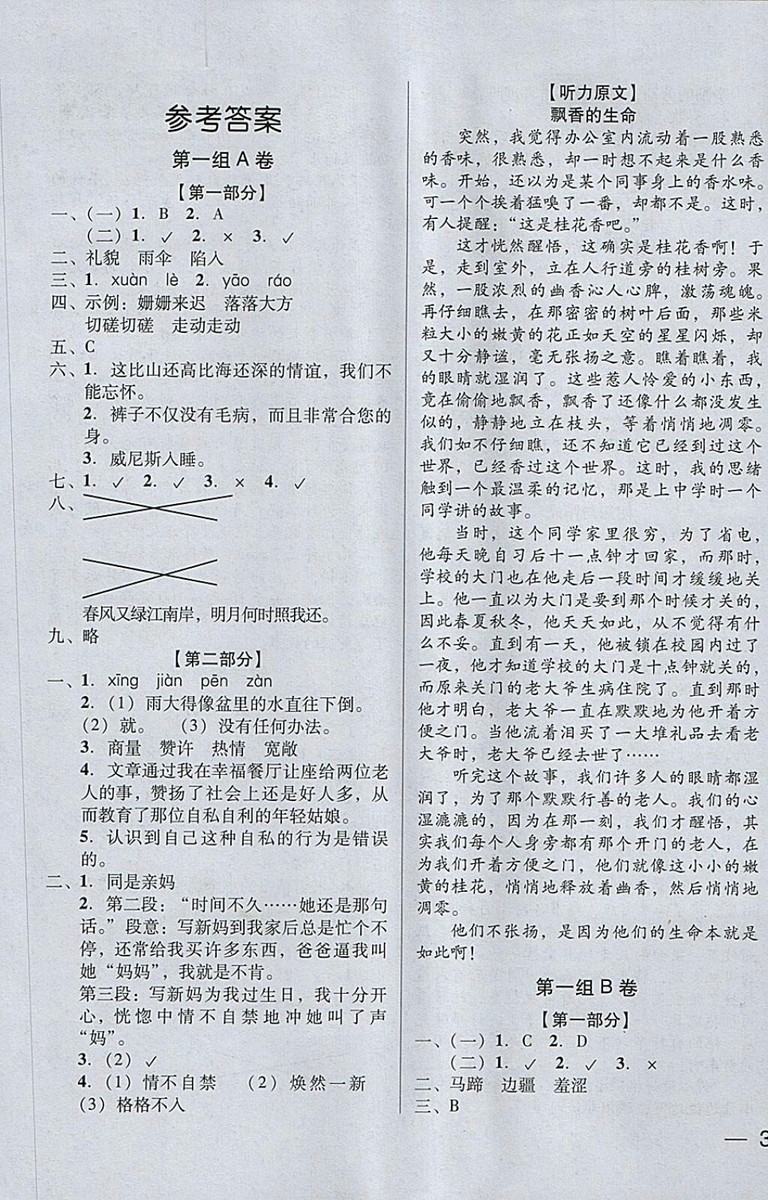 参考答案
第一组A卷
【第一部分】
一、(一) 1. B 2. A
(二) 1. ✓ 2. × 3. ✓
二、礼貌 雨伞 陷入
三、1. xuàn lè 2. yāo ráo
四、示例：姗姗来迟 落落大方
切磋切磋 走动走动
五、C
六、1. 这比山还高比海还深的情谊，我们不
能忘怀。
2. 裤子不仅没有毛病，而且非常合您的
身。
3. 威尼斯入睡。
七、1. ✓ 2. ✓ 3. × 4. ✓
八、
春风又绿江南岸，明月何时照我还。
九、略
【第二部分】
一、1. xīng jiàn pēn zàn
2. (1) 雨大得像盆里的水直往下倒。
(2) 就。 (3) 没有任何办法。
3. 商量 赞许 热情 宽敞
4. 文章通过我在幸福餐厅让座给两位老
人的事，赞扬了社会上还是好人多，从
而教育了那位自私自利的年轻姑娘。
5. 认识到自己这种自私的行为是错误
的。
二、1. 同是亲妈
2. 第二段：“时间不久……她还是那句
话。”段意：写新妈到我家后总是忙个不
停，还常给我买许多东西，爸爸逼我叫
她“妈妈”，我就是不肯。
第三段：写新妈为我过生日，我十分开
心，恍惚中情不自禁地冲她叫了声
“妈”。
3. (2) ✓
4. (1) 情不自禁 (2) 焕然一新
(3) 格格不入
【听力原文】
飘香的生命
突然，我觉得办公室内流动着一股熟悉
的香味，很熟悉，却一时想不起来是什么香
味。开始，还以为是某个同事身上的香水味。
可一个个挨着猛嗅了一番，却都不是。这时，
有人提醒：“这是桂花香吧。”
这才恍然醒悟，这确实是桂花香啊！于
是，走到室外，立在人行道旁的桂树旁。果
然，一股浓烈的幽香沁人心脾，激荡魂魄。
再仔细瞧去，在那密密的树叶后面，那些米
粒大小的嫩黄的花正如天空的星星闪烁，却
又十分静谧，毫无张扬之意。瞧着瞧着，我
的眼睛就湿润了。这些惹人怜爱的小东西，
竟在偷偷地飘香，飘香了还像什么都没发生
似的，静静地立在枝头，等着悄悄地凋零。
我们如不仔细瞧，还不知道它已经到过这个
世界，已经香过这个世界。这时，我的思绪
触到一个最温柔的记忆，那是上中学时一个
同学讲的故事。
当时，这个同学家里很穷，为了省电，
他每天晚自习后十一点钟才回家，而那时，
学校的大门也在他走后一段时间才缓缓地关
上。他一直以为大门是要到那个时候才关的，
因此春夏秋冬，他天天如此，从不觉得有什
么不妥。直到有一天，他被锁在校园内过了
一夜，他才知道学校的大门是十点钟就关的，
而原来关门的老大爷生病住院了。直到那时
他才明白，老大爷一直在默默地为他开着方
便之门。当他流着泪买了一大堆礼品去看老
大爷时，老大爷已经去世了……
听完这个故事，我们许多人的眼睛都湿
润了，为了那个默默行善的老人。我们的心
湿漉漉的，因为在那一刻，我们才醒悟，其
实我们每个人身旁都有那个开门的老人，在
为我们开着方便之门，他们就像这小小的嫩
黄的桂花，悄悄地释放着幽香，然后悄悄地
凋零。
他们不张扬，是因为他们的生命本就是
如此啊！
第一组B卷
【第一部分】
一、(一) 1. C 2. D
(二) 1. ✓ 2. ✓ 3. ×
二、马蹄 边疆 羞涩
三、B
— 3